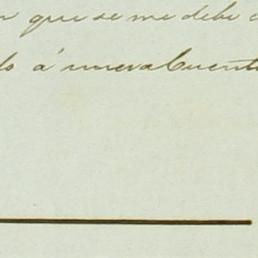 que se me debe
á nueva Cuenta